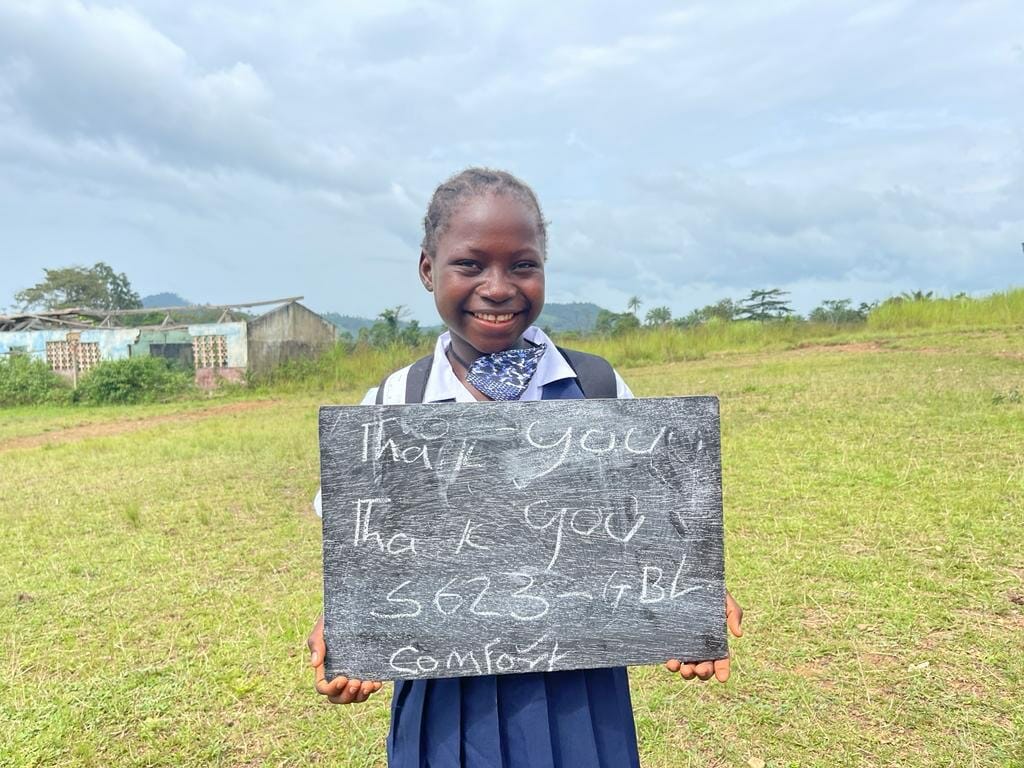 Thak you
Thak you
S623-GBL
Comfort